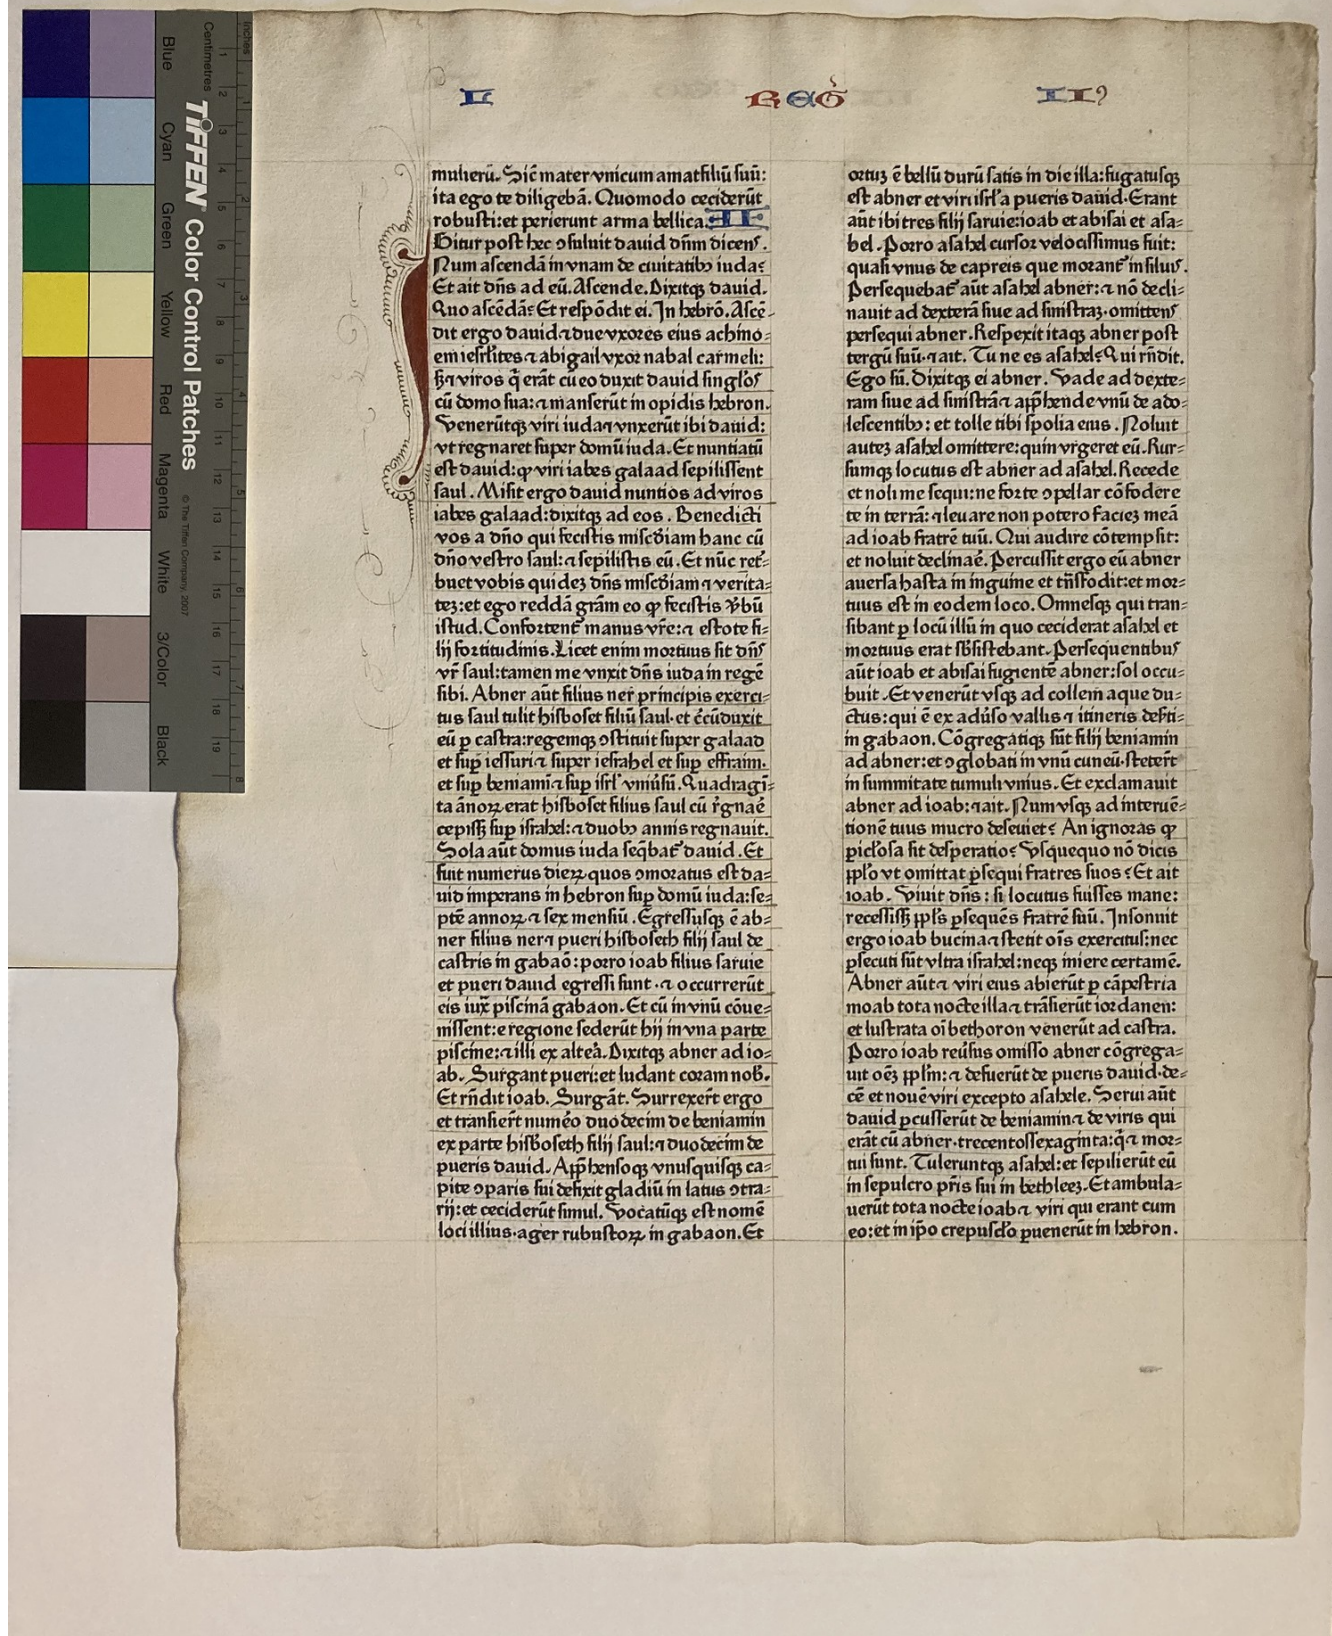 L REG̃ II⁹
mulierū. Sic̄ mater vnicum amat filiū suū:
ita ego te diligebā. Quomodo ceciderūt
robusti: et perierunt arma bellica. II
Gitur post hec ɔsuluit dauid dn̄m dicens.
Num ascendā in vnam de ciuitatibꝫ iuda?
Et ait dn̄s ad eū. Ascende. Dixitqꝫ dauid.
Quo ascēdā? Et respōdit ei. In hebrō. Ascē-
dit ergo dauid ⁊ due vxores eius achino-
em iesrl̄ites ⁊ abigail vxor nabal carmeli:
sꝫ ⁊ viros q̄ erāt cū eo duxit dauid singl̄os
cū domo sua: ⁊ manserūt in opidis hebron.
Venerūtqꝫ viri iuda ⁊ vnxerūt ibi dauid:
vt regnaret super domū iuda. Et nuntiatū
est dauid: qꝙ viri iabes galaad sepilissent
saul. Misit ergo dauid nuntios ad viros
iabes galaad: dixitqꝫ ad eos. Benedicti
vos a dn̄o qui fecistis misc̄diam hanc cū
dn̄o vestro saul: ⁊ sepilistis eū. Et nūc ret̄-
buet vobis quideꝫ dn̄s misc̄diam ⁊ verita-
teꝫ: et ego reddā grām eo ꝙ fecistis v̄bū
istud. Confortent̄ manus vr̄e: ⁊ estote fi-
lij fortitudinis. Licet enim mortuus sit dn̄s
vr̄ saul: tamen me vnxit dn̄s iuda in regē
sibi. Abner aūt filius ner principis exerci-
tus saul tulit hisboset filiū saul. et c̄cūduxit
eū ꝑ castra: regemqꝫ ɔstituit super galaad
et suꝑ iessuri ⁊ super iesrahel et suꝑ effraim.
et suꝑ beniami ⁊ suꝑ isrl̄ vniūsū. Quadragī-
ta ānoꝝ erat hisboset filius saul cū r̄gnar̄
cepissꝫ suꝑ israhel: ⁊ duobꝫ annis regnauit.
Sola aūt domus iuda seq̄bat̄ dauid. Et
fuit numerus dieꝝ quos ɔmoratus est da-
uid imperans in hebron suꝑ domū iuda: se-
ptē annoꝝ ⁊ sex mensiū. Egressusqꝫ ē ab-
ner filius ner ⁊ pueri hisboseth filij saul de
castris in gabaō: porro ioab filius saruie
et pueri dauid egressi sunt. ⁊ occurrerūt
eis iux̄ piscinā gabaon. Et cū in vnū cōue-
nissent: e regione sederūt hij in vna parte
piscine: ⁊ illi ex altera. Dixitqꝫ abner ad io-
ab. Surgant pueri: et ludant coram nob̄.
Et rn̄dit ioab. Surgāt. Surrexer̄t ergo
et transier̄t num̄o duodecim de beniamin
ex parte hisboseth filij saul: ⁊ duodecim de
pueris dauid. Apph̄ensoqꝫ vnusquisqꝫ ca-
pite ɔparis sui defixit gladiū in latus ɔtra-
rij: et ceciderūt simul. Vocatūqꝫ est nomē
loci illius. ager rubustoꝝ in gabaon. Et
ortuꝫ ē bellū durū satis in die illa: fugatusqꝫ
est abner et viri isrl̄ a pueris dauid. Erant
aūt ibi tres filij saruie: ioab et abisai et asa-
hel. Porro asahel cursor velocissimus fuit:
quasi vnus de capreis que morant̄ in siluis.
Persequebat̄ aūt asahel abner: ⁊ nō decli-
nauit ad dexterā siue ad sinistraꝫ. omittens
persequi abner. Respexit itaqꝫ abner post
tergū suū. ⁊ ait. Tu ne es asahel? Qui rn̄dit.
Ego sū. Dixitqꝫ ei abner. Vade ad dexte-
ram siue ad sinistrā ⁊ apph̄ende vnū de ado-
lescentibꝫ: et tolle tibi spolia eius. Noluit
auteꝫ asahel omittere: quin vrgeret eū. Rur-
sumqꝫ locutus est abner ad asahel. Recede
et noli me sequi: ne forte ɔpellar cōfodere
te in terrā: ⁊ leuare non potero facieꝫ meā
ad ioab fratrē tuū. Qui audire cōtempsit:
et noluit declinar̄. Percussit ergo eū abner
auersa hasta in inguine et tn̄sfodit: et mor-
tuus est in eodem loco. Omnesqꝫ qui tran-
sibant ꝑ locū illū in quo ceciderat asahel et
mortuus erat sb̄sistebant. Persequentibus
aūt ioab et abisai fugientē abner: sol occu-
buit. Et venerūt vsqꝫ ad collem aque du-
ctus: qui ē ex adūso vallis ⁊ itineris deserti-
in gabaon. Cōgregatiqꝫ sūt filij beniamin
ad abner: et ɔglobati in vnū cuneū. steter̄t
in summitate tumuli vnius. Et exclamauit
abner ad ioab: ⁊ ait. Num vsqꝫ ad interne-
tionē tuus mucro deseuiet? An ignoras ꝙ
picl̄osa sit desperatio? Vsquequo nō dicis
ppl̄o vt omittat ꝑsequi fratres suos? Et ait
ioab. Viuit dn̄s: si locutus fuisses mane:
recessissꝫ ppl̄s ꝑsequēs fratrē suū. Insonuit
ergo ioab bucina ⁊ stetit oīs exercitus: nec
ꝑsecuti sūt vltra israhel: neqꝫ iniere certamē.
Abner aūt ⁊ viri eius abierūt ꝑ cāpestria
moab tota nocte illa ⁊ trāsierūt iordanen:
et lustrata oī bethoron venerūt ad castra.
Porro ioab reūsus omisso abner cōgrega-
uit oēꝫ ppl̄m: ⁊ defuerūt de pueris dauid. de-
cē et nouē viri excepto asahele. Serui aūt
dauid ꝑcusserūt de beniamin ⁊ de viris qui
erāt cū abner. trecentossexaginta: q̄ ⁊ mor-
tui sunt. Tuleruntqꝫ asahel: et sepilierūt eū
in sepulcro pr̄is sui in bethleeꝫ. Et ambula-
uerūt tota nocte ioab ⁊ viri qui erant cum
eo: et in ip̄o crepusc̄lo ꝑuenerūt in hebron.
Inches
Centimetres
TIFFEN Color Control Patches
© The Tiffen Company, 2007
Blue
Cyan
Green
Yellow
Red
Magenta
White
3/Color
Black
1 2 3 4 5 6 7 8 9 10 11 12 13 14 15 16 17 18 19
1 2 3 4 5 6 7 8